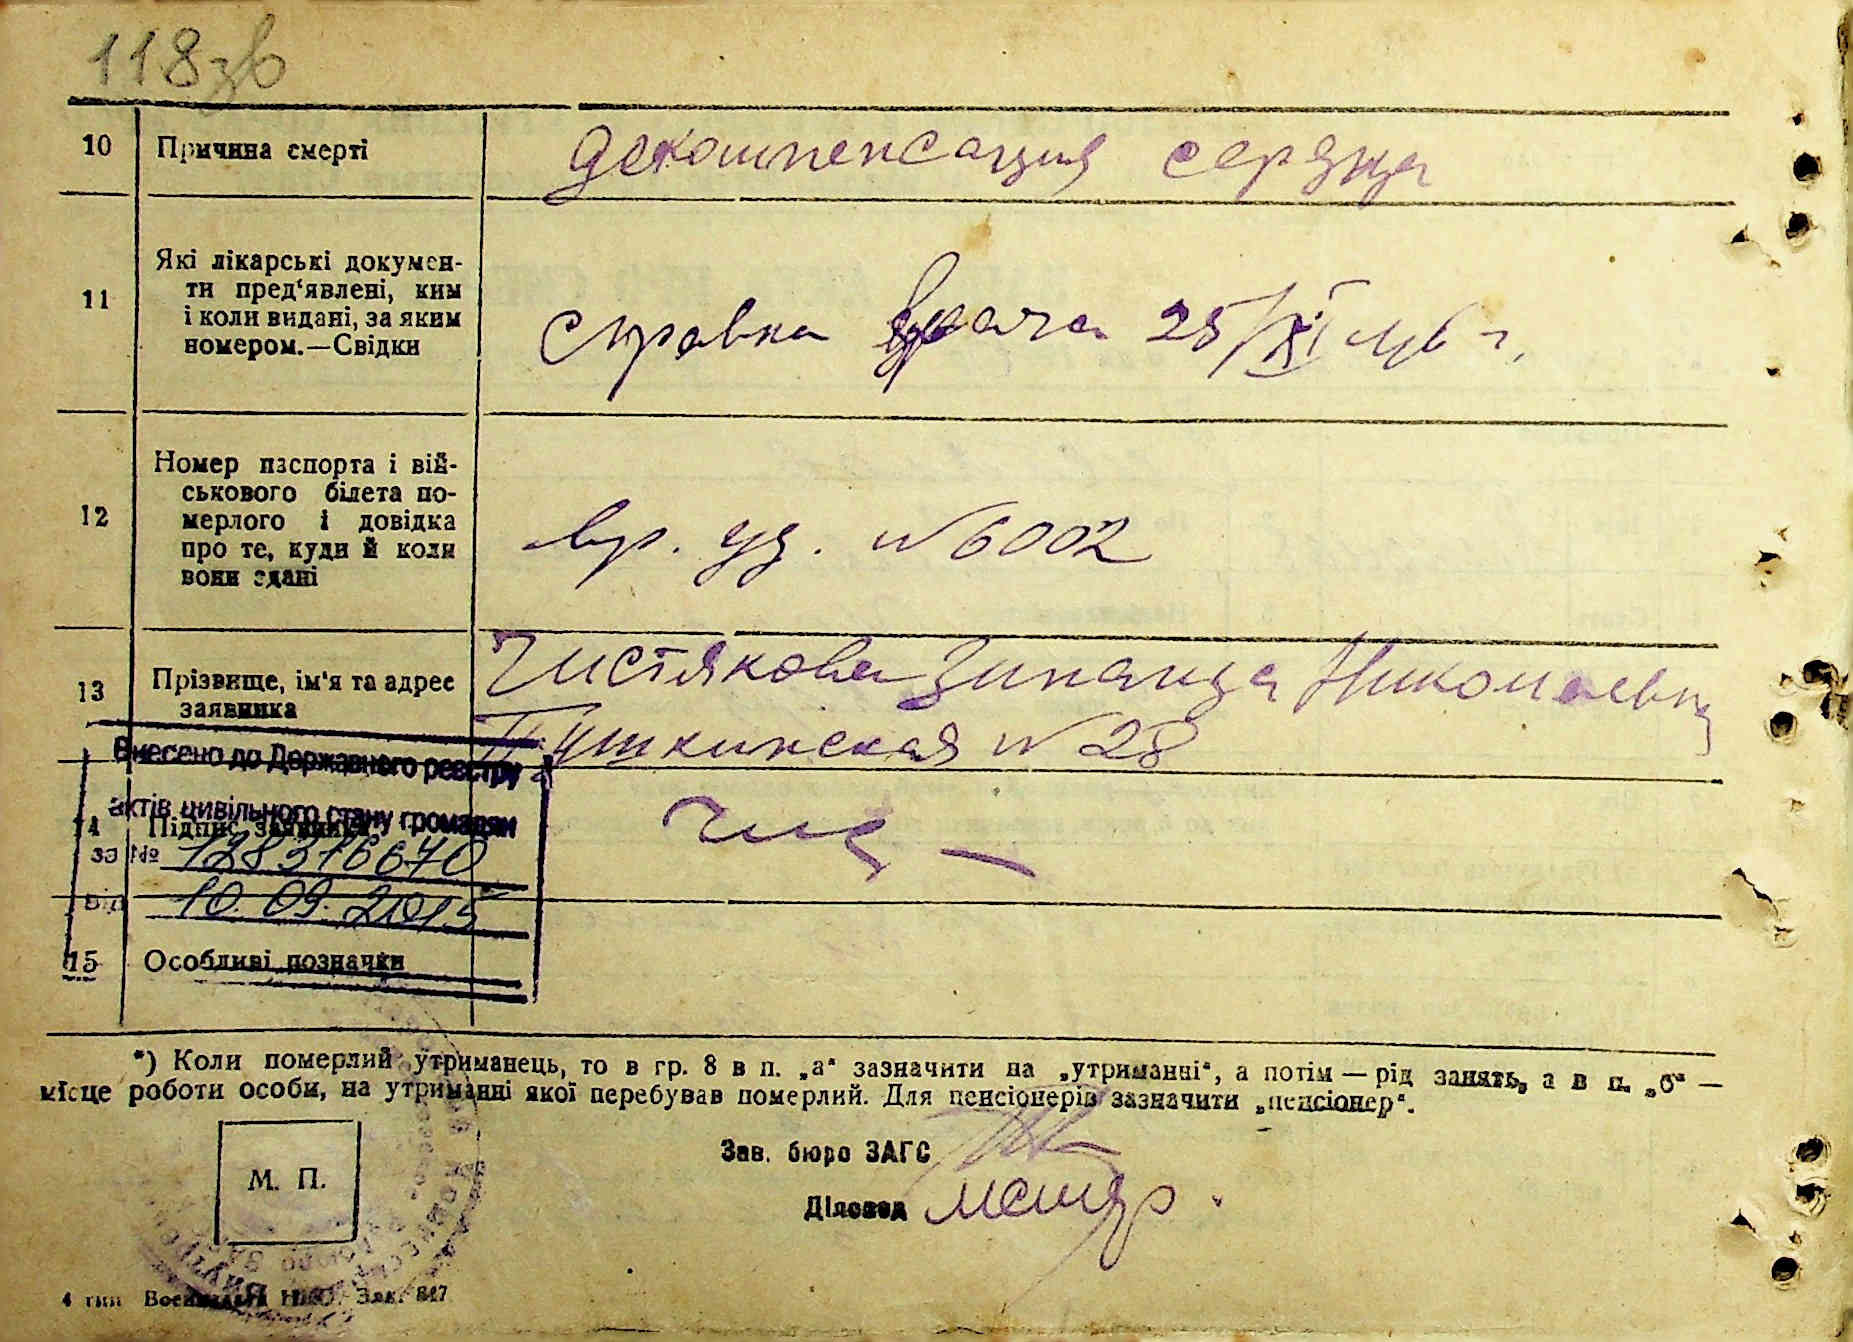 118зв
10 Причина смерті декомпенсация сердца
11 Які лікарські докумен-
ти пред'явлені, ким
і коли видані, за яким
номером.—Свідки
справка врача 25/XI 46 г.
12 Номер паспорта і вій-
ськового білета по-
мерлого і довідка
про те, куди й коли
вони здані
вр. уд. №6002
13 Прізвище, ім'я та адрес
заявника
Чистякова Зинаида Николаевна
Пушкинская №28
Внесено до Державного реєстру
актів цивільного стану громадян
14 Підпис заявника
за № 128316670
від 10.09.2015
15 Особливі позначки
*) Коли померлий утриманець, то в гр. 8 в п. „а“ зазначити на „утриманні“, а потім — рід занять, а в п. „б“ —
місце роботи особи, на утриманні якої перебував померлий. Для пенсіонерів зазначити „пенсіонер“.
Зав. бюро ЗАГС
М. П.
Діловод
4 тип Воениздата НКО. Зак. 847